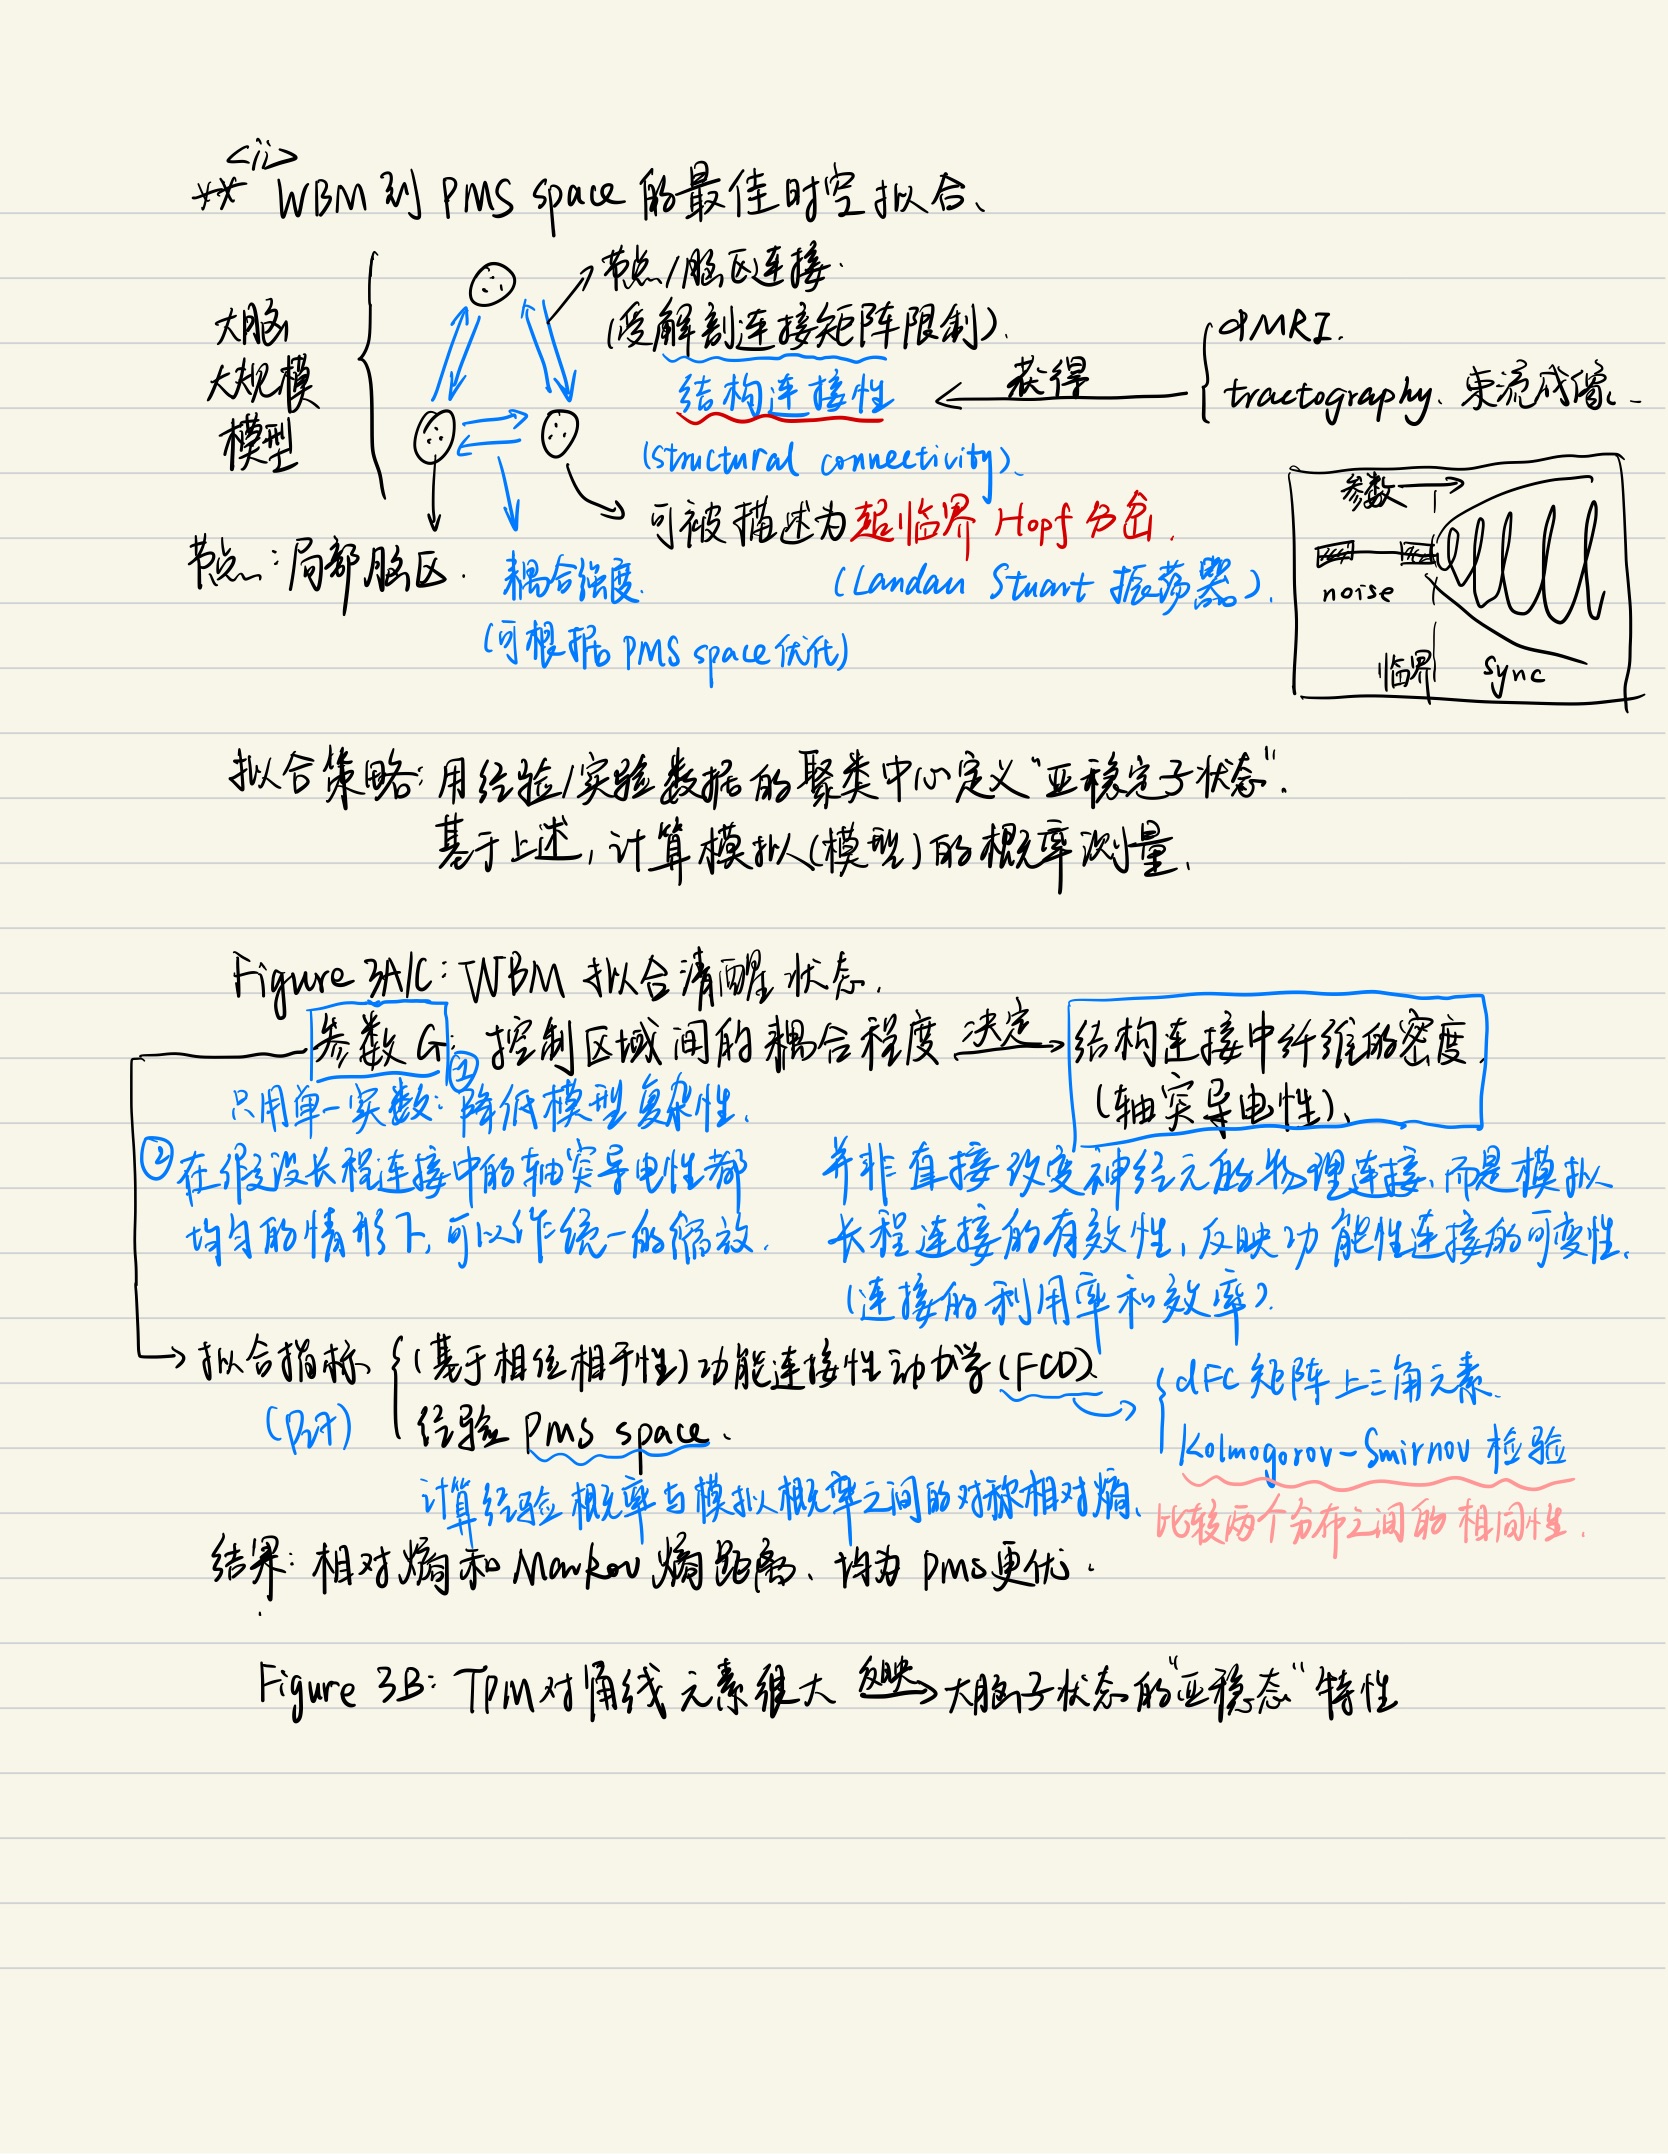 <ii>
** WBM到PMS space的最佳时空拟合、
节点/脑区连接.
(受解剖连接矩阵限制).
大脑
大规模
模型
结构连接性
获得
dMRI.
tractography、束流成像、
(structural connectivity)、
可被描述为超临界 Hopf 分岔.
(Landau Stuart 振荡器).
节点:局部脑区.
耦合强度.
(可根据PMS space优化)
参数
noise
临界
sync
拟合策略:用经验/实验数据的聚类中心定义"亚稳定子状态".
基于上述,计算模拟(模型)的概率测量、
Figure 3A/C: WBM 拟合清醒状态.
参数G: 控制区域间的耦合程度 决定 结构连接中纤维的密度
(轴突导电性)、
① 只用单一实数:降低模型复杂性.
② 在假设长程连接中的轴突导电性都
均匀的情形下,可以作统一的缩放.
并非直接改变神经元的物理连接,而是模拟
长程连接的有效性,反映功能性连接的可变性.
(连接的利用率和效率).
拟合指标
(基于相位相干性)功能连接性动力学(FCD)
经验 PMS space.
dFC矩阵上三角元素.
Kolmogorov-Smirnov 检验
比较两个分布之间的相同性.
计算经验概率与模拟概率之间的对称相对熵、
结果:相对熵和Markov熵距离、均为PMS更优.
Figure 3B: TPM对角线元素很大 反映 大脑子状态的"亚稳态"特性